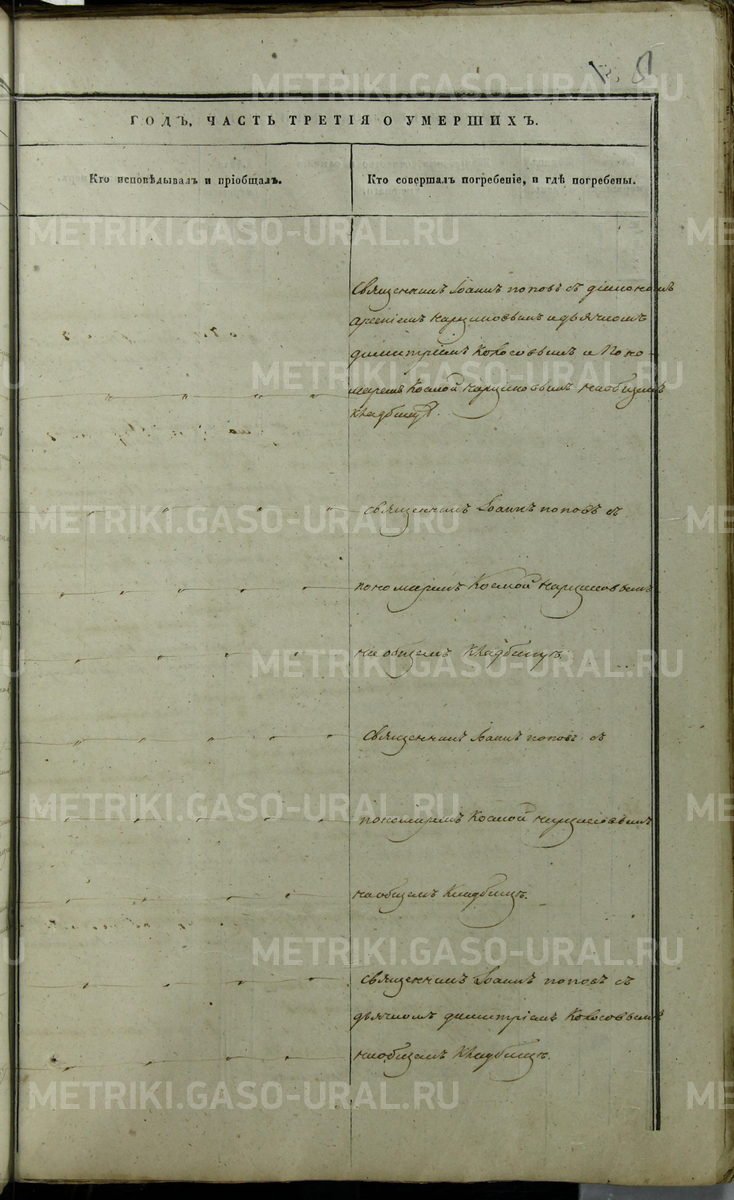 8
ГОДЪ, ЧАСТЬ ТРЕТІЯ О УМЕРШИХЪ.
Кто исповѣдывалъ и пріобщалъ.
Кто совершалъ погребеніе, и гдѣ погребены.
Священникъ Іоаннъ поповъ съ діакономъ
арсеніемъ нарциссовымъ и дьячкомъ
димитріемъ Колосовымъ и Поно-
маремъ Космой нарциссовымъ на общемъ
кладбищѣ.
священникъ Іоаннъ поповъ съ
пономаремъ Космой нарциссовымъ
на общемъ кладбищѣ
Священникъ Іоаннъ поповъ съ
пономаремъ Космой нарциссовымъ
на общемъ Кладбищѣ.
священникъ Іоаннъ поповъ съ
дьячкомъ димитріемъ Колосовымъ
на общемъ кладбищѣ.
METRIKI.GASO-URAL.RU